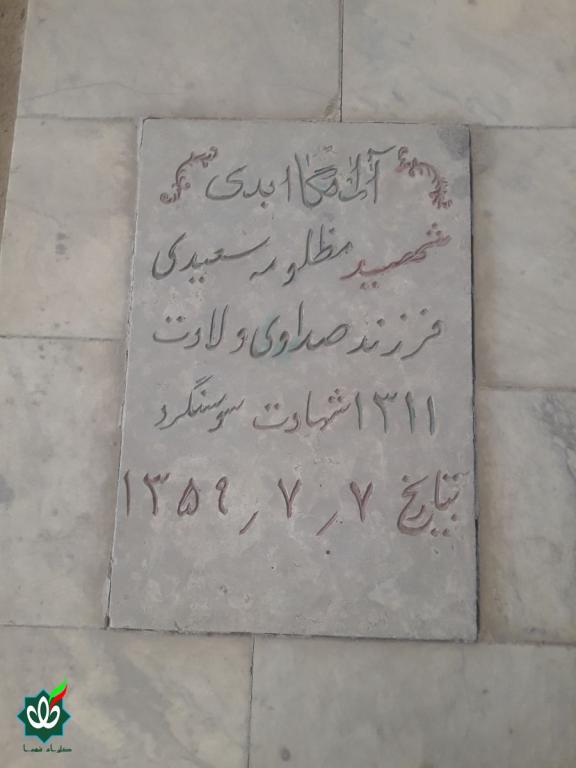 آرامگاه ابدی
شهید مظلومه سعیدی
فرزند صداوی ولادت
۱۳۱۱ شهادت سوسنگرد
بتاریخ ۷ / ۷ / ۱۳۵۹